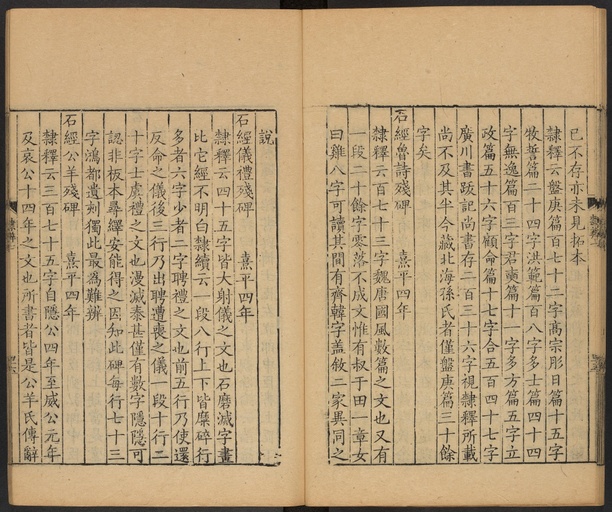 已不存亦未見拓本
隸釋云盤庚篇百七十二字高宗肜日篇十五字
牧誓篇二十四字洪範篇百八字多士篇四十四
字無逸篇百三字君奭篇十一字多方篇五字立
政篇五十六字顧命篇十七字合五百四十七字
廣川書跋記尚書存二百三十六字視隸釋所載
尚不及其半今藏北海孫氏者僅盤庚篇三十餘
字矣
石經魯詩殘碑 熹平四年
隸釋云百七十三字魏唐國風數篇之文也又有
一段二十餘字零落不成文惟有叔于田一章女
曰雞八字可讀其間有齊韓字蓋敘二家異同之
說
石經儀禮殘碑 熹平四年
隸釋云四十五字皆大射儀之文也石磨滅字畫
比它經不明白隸續云一段八行上下皆糜碎行
多者六字少者二字聘禮之文也前五行乃使還
反命之儀後三行乃出聘遭喪之儀一段十行二
十字士虞禮之文也漫滅泰甚僅有數字隱隱可
認非板本尋繹安能得之因知此碑每行七十三
字鴻都遺刻獨此最為難辨
石經公羊殘碑 熹平四年
隸釋云三百七十五字自隱公四年至威公元年
及哀公十四年之文也所書者皆是公羊氏傳辭